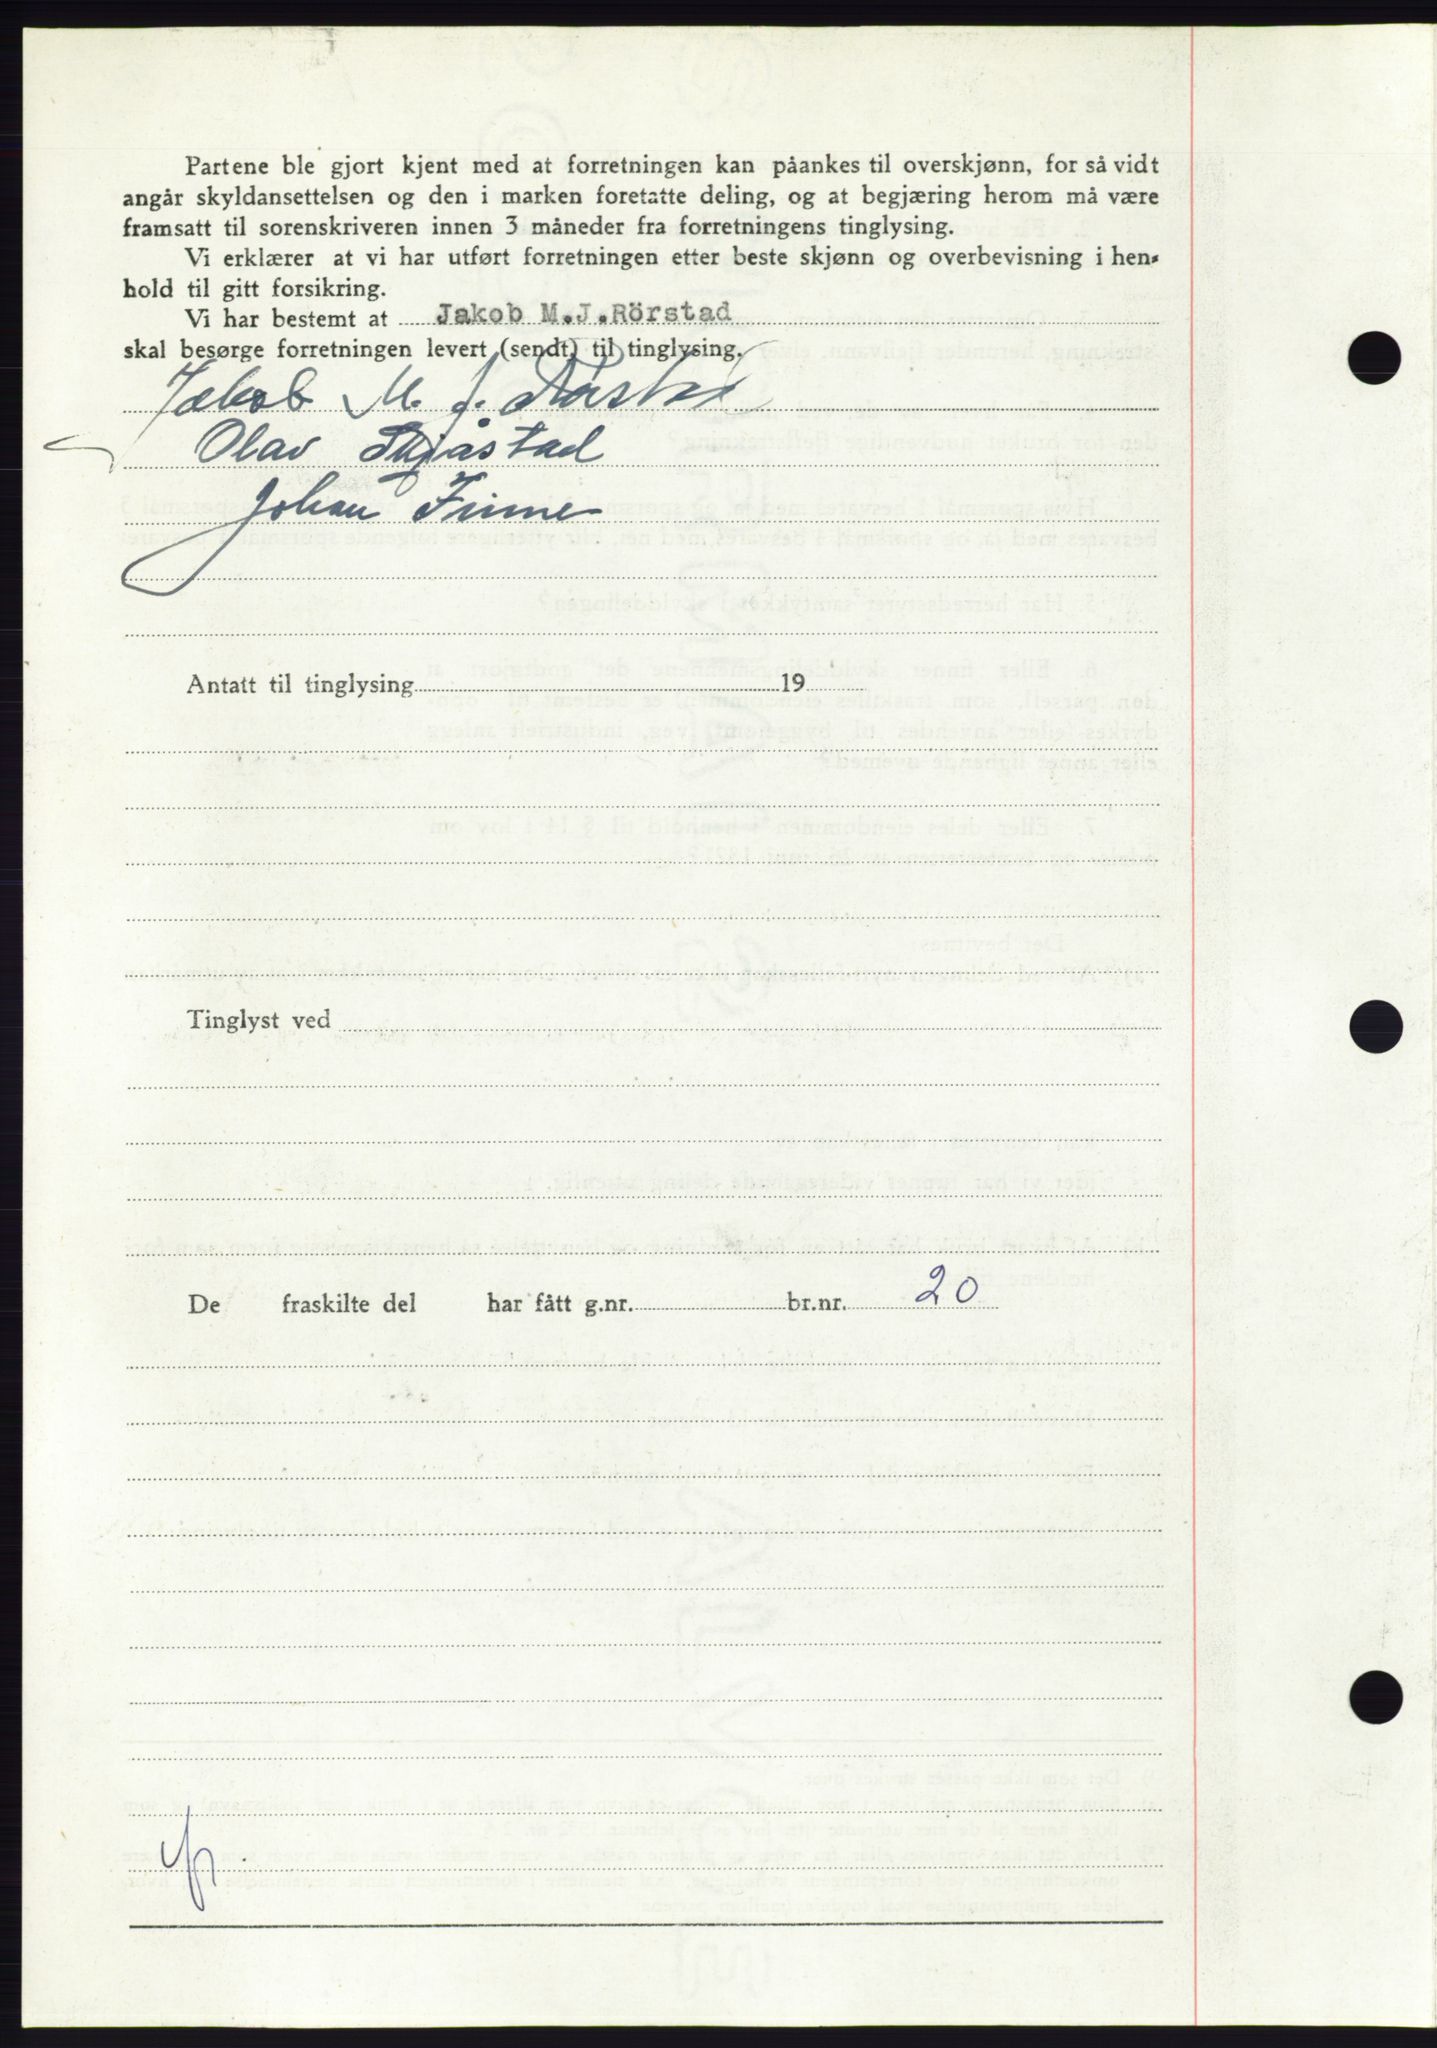 Partene ble gjort kjent med at forretningen kan påankes til overskjønn, for så vidt
angår skyldansettelsen og den i marken foretatte deling, og at begjæring herom må være
framsatt til sorenskriveren innen 3 måneder fra forretningens tinglysing.
Vi erklærer at vi har utført forretningen etter beste skjønn og overbevisning i hen-
hold til gitt forsikring.
Vi har bestemt at Jakob M.J.Rörstad
skal besørge forretningen levert (sendt) til tinglysing.
Jakob M. J. Rörstad
Olav
Johan Finne
Antatt til tinglysing 19
Tinglyst ved
De fraskilte del har fått g.nr. br.nr. 20